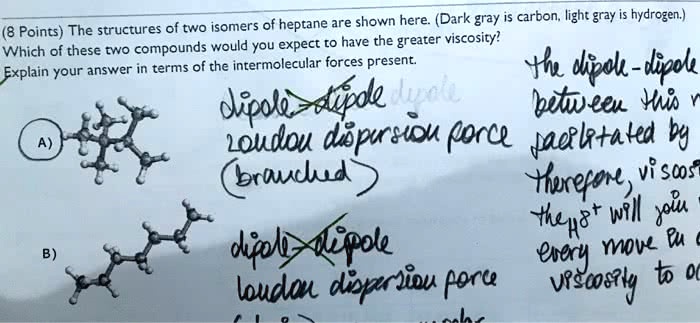 (8 Points) The structures of two isomers of heptane are shown here. (Dark gray is carbon, light gray is hydrogen.)
Which of these two compounds would you expect to have the greater viscosity?
Explain your answer in terms of the intermolecular forces present.
A)
dipole-dipole dipole
London dispersion force
(branched)
B)
dipole-dipole
London dispersion force
the dipole-dipole
between this
facilitated by
Therefore,
the H δ+ will join
every move in
viscosity to